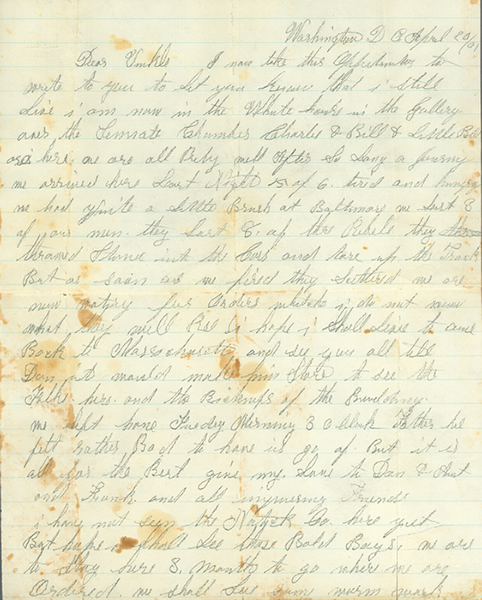 Washington D C April 20/61
Dear Unkle I now take this Opertunity to
write to you to let you know that i still
live i am now in the White house in the Gallery
over the Sennate Chamber Charles & Bill & Little Bill
are here, we are all Prity well After So Long a Jurney
we arrived here Last Night of 6. tired and hungry
we had quite a little Brush at Baltimore we Lost
of our men. they Lost 8. of the Rebels they
throwed Stone into the Cars and tore up the Track
But as soon as we fired they Scattered we are
now wating for Orders which i do not now
what they will Be i hope i shall live to come
Back to Massachusetts and see you all tell
Dan it would make him Stare to see the
Folks here. and the Bigness of the Buildings
we left home Tuesday Morning 3 O Clock Father he
felt rather Bad to have us go of. But it is
all for the Best give my Love to Dan & Aunt
and Frank and all inquiring Friends
i have not seen the Natick Co. here yet
But hope i shall See those Bold Boys, we are
to Stay here 3. Months to go where we are
Ordered. we shall See some warm work